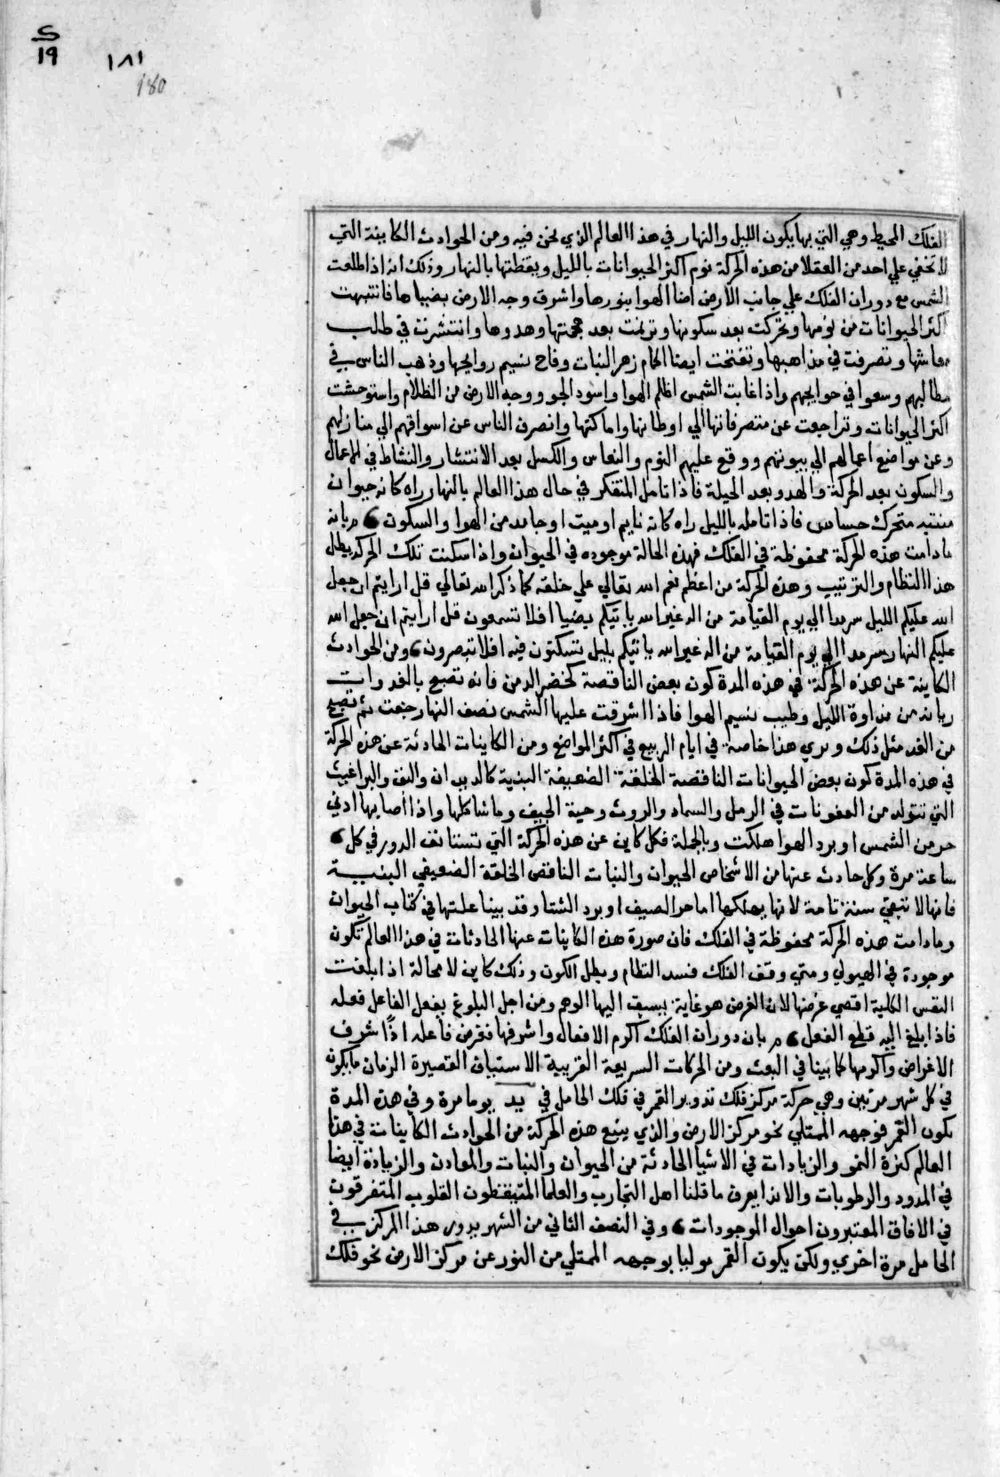 ک
١٩
١٨١
180
الفلك المحيط وهي التي بها يكون الليل والنهار في هذا العالم الذي نحن فيه ومن الحوادث الكاينة التي
لا تخفي علي احد من العقلا من هذه الحركة نوم اكثر الحيوانات بالليل ويقظتها بالنهار وذلك انه اذا طلعت
الشمس مع دوران الفلك علي جانب الارض اضا الهوا بنورها واشرق وجه الارض بضياها فانتبهت
اكثر الحيوانات من نومها وتحركت بعد سكونها وترنمت بعد هجعتها وهدوها وانتشرت في طلب
معاشها وتصرفت في مذاهبها وتفتحت ايضا اكمام زهر النبات وفاح نسيم روايحها وذهب الناس في
مطالبهم وسعوا في حوايجهم واذا غابت الشمس اظلم الهوا واسود الجو ووجه الارض من الظلام واستوحشت
اكثر الحيوانات وتراجعت عن متصرفاتها الي اوطانها واماكنها وانصرف الناس عن اسواقهم الي منازلهم
وعن مواضع اعمالهم الي بيوتهم ووقع عليهم النوم والنعاس والكسل بعد الانتشار والنشاط في الاعمال
والسكون بعد الحركة والهدو بعد الحيلة فاذا تامل المتفكر في حال هذا العالم بالنهار راه كانه حيوان
منتبه متحرك حساس فاذا تامله بالليل راه كانه نايم او ميت او جامد من الهوا والسكون
مادامت هذه الحركة محفوظة في الفلك فهذه الحالة موجوده في الحيوان واذا سكنت تلك الحركة بطل
هذا النظام والترتيب وهذه الحركة من اعظم نعم الله تعالي علي خلقه كما ذكر الله تعالي قل ارايتم ان جعل
الله عليكم الليل سرمدا الي يوم القيامة من اله غير الله ياتيكم بضيا افلا تسمعون قل ارايتم ان جعل الله
عليكم النهار سرمدا الي يوم القيامة من اله غير الله ياتيكم بليل تسكنون فيه افلا تبصرون ومن الحوادث
الكاينة عن هذه الحركة في هذه المدة كون بعض الناقصة كخضر الدمن فانه تصبح بالغدوات
ريانة من نداوة الليل وطيب نسيم الهوا فاذا اشرقت عليها الشمس نصف النهار جفت ثم تصبح
من الغد مثل ذلك ويري هذا خاصة في ايام الربيع في اكثر المواضع ومن الكاينات الحادثة عن هذه الحركة
في هذه المدة كون بعض الحيوانات الناقصة الخلقة الضعيفة البنية كالديدان والبق والبراغيث
التي تتولد من العفونات في الرمل والسماد والروث وجيفة الجيف وما شاكلها واذا اصابها ادني
حر من الشمس او برد الهوا هلكت وبالجملة فكل كاين عن هذه الحركة التي تستانف الدور في كل
ساعة مرة وكل حادث عنها من الاشخاص الحيوان والنبات الناقص الخلقة الضعيفي البنية
فانها لا تبقي سنة تامة لانها يهلكها اما حر الصيف او برد الشتا وقد بينا علتها في كتاب الحيوان
ومادامت هذه الحركة محفوظة في الفلك فان صورة هذه الكاينات عنها الحادثات في هذا العالم تكون
موجودة في الهيولي ومتي وقف الفلك فسد النظام وبطل الكون وذلك كاين لا محالة اذا بلغت
النفس الكلية اقصي غرضها لان الغرض هو غاية يسبق اليها الوهم ومن اجل البلوغ يفعل الفاعل فعله
فاذا بلغ اليه قطع الفعل دوران الفلك اكرم الافعال واشرفها فغرض فاعله اذا اشرف
الاغراض واكرمها كما بينا في البعث ومن الحركات السريعة القريبة الاستباق القصيرة الزمان ما يكون
في كل شهر مرتين وهي حركة مركز فلك تدوير القمر في فلك الحامل في يد يوما مرة وفي هذه المدة
يكون القمر فوجهه الممتلي نحو مركز الارض والذي يتبع هذه الحركة من الحوادث الكاينات في هذا
العالم كثرة النمو والزيادات في الاشيا الحادثة من الحيوان والنبات والمعادن والزيادة ايضا
في المدود والرطوبات والاندا يعرف ماقلنا اهل التجارب والعلما المتيقظون القلوب المتفرقون
في الافاق المعتبرون احوال الموجودات وفي النصف الثاني من الشهر يدور هذا المركز في
الحامل مرة اخري ولكن يكون القمر موليا بوجهه الممتلي من النور عن مركز الارض نحو فلك